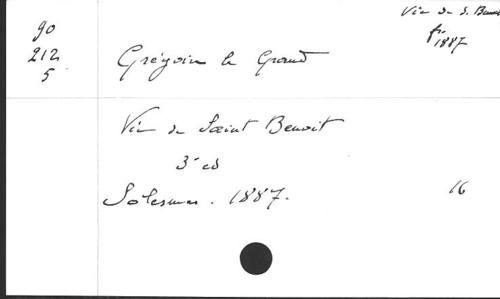 90
212
5
Vie de S. Benoit
fr 1887
Grégoire le Grand
Vie de Saint Benoit
3e ed
Solesmes. 1887.
16